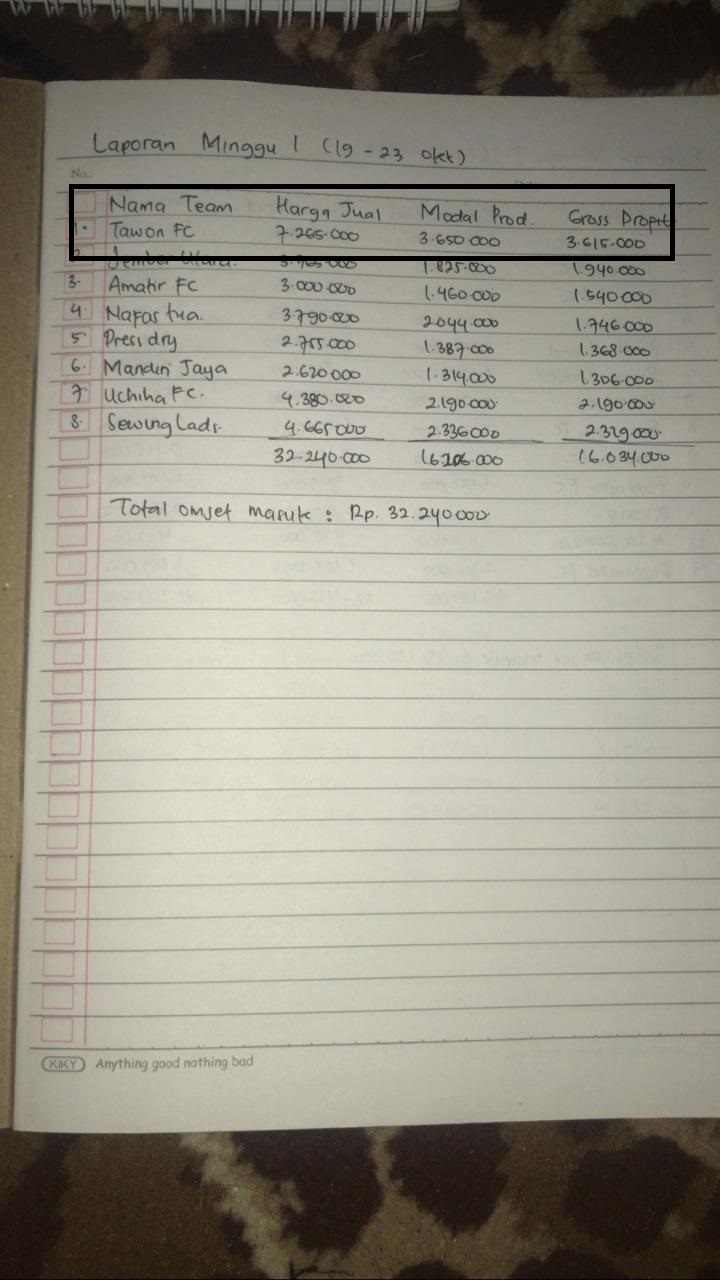 Laporan Minggu 1 (19 - 23 Okt)
No.:
Nama Team Harga Jual Modal Prod. Gross Profit
1. Tawon FC 7.265.000 3.650.000 3.615.000
2 Jember Utara. 3.765.000 1.825.000 1.940.000
3. Amatir FC 3.000.000 1.460.000 1.540.000
4. Nafas tua. 3.790.000 2.044.000 1.746.000
5. Press dry 2.755.000 1.387.000 1.368.000
6. Mandiri Jaya 2.620.000 1.314.000 1.306.000
7. Uchiha FC. 4.380.000 2.190.000 2.190.000
8. Sewing Lads. 4.665.000 2.336.000 2.329.000
32.240.000 16.206.000 16.034.000
Total omset masuk : Rp. 32.240.000
KIKY Anything good nothing bad